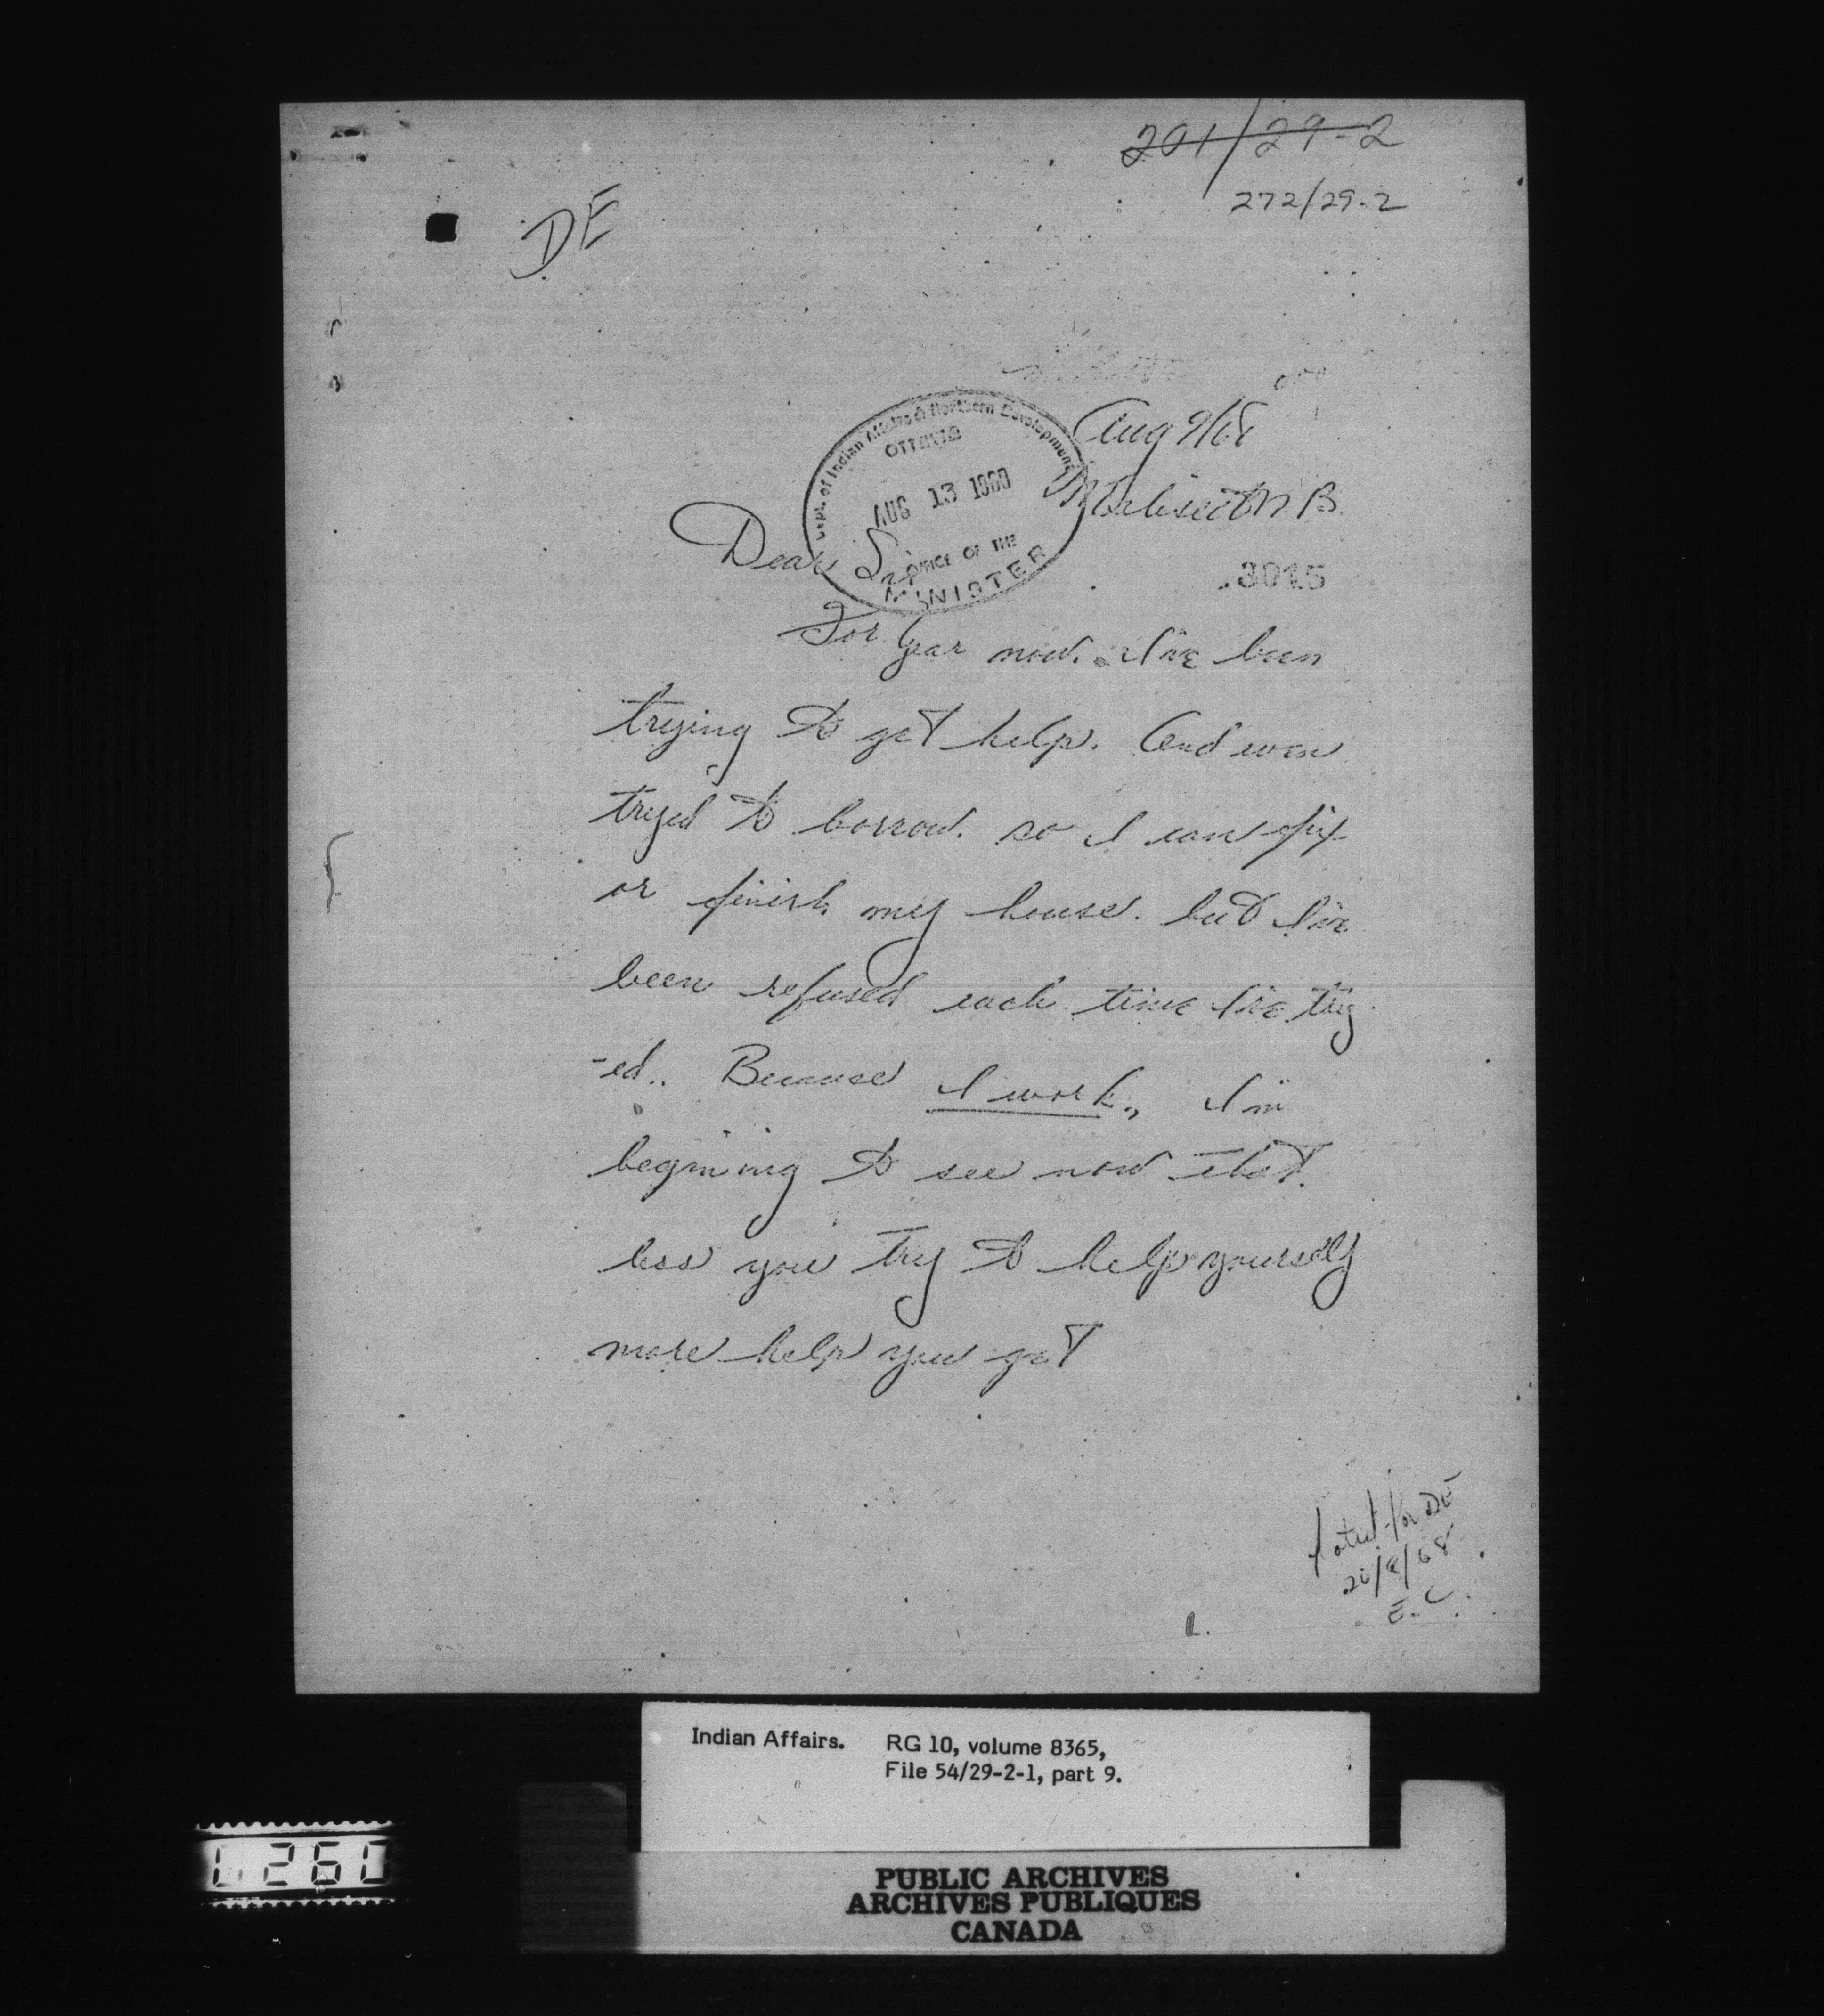 201/29-2
272/29-2
DE
Aug 9/68
Maliseet N B.
Dept. of Indian Affairs & Northern Development
OTTAWA
AUG 13 1968
OFFICE OF THE
MINISTER
3015
Dear Sir
For year now. I've been
trying to get help. And even
tryed to borrow. so I can fix
or finish my house. but I've
been refused each time I've try
-ed.. Because I work., I'm
begining to see now that.
less you try to help yourself
more help you get
for DE
20/8/68
E.C.
Indian Affairs. RG 10, volume 8365,
File 54/29-2-1, part 9.
0260
PUBLIC ARCHIVES
ARCHIVES PUBLIQUES
CANADA